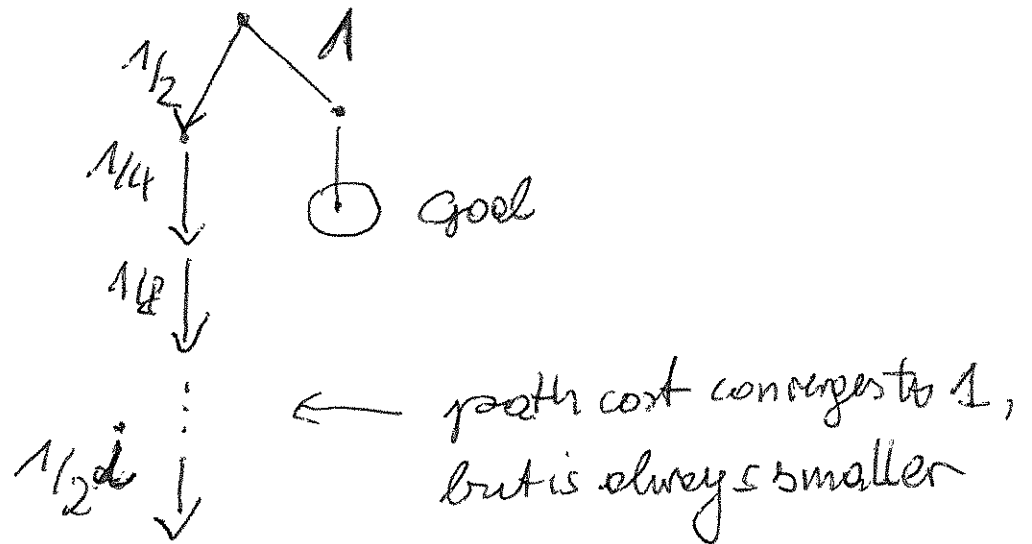 1
1/2
1/4
Goal
1/8
path cost converges to 1,
1/2^d
but is always smaller